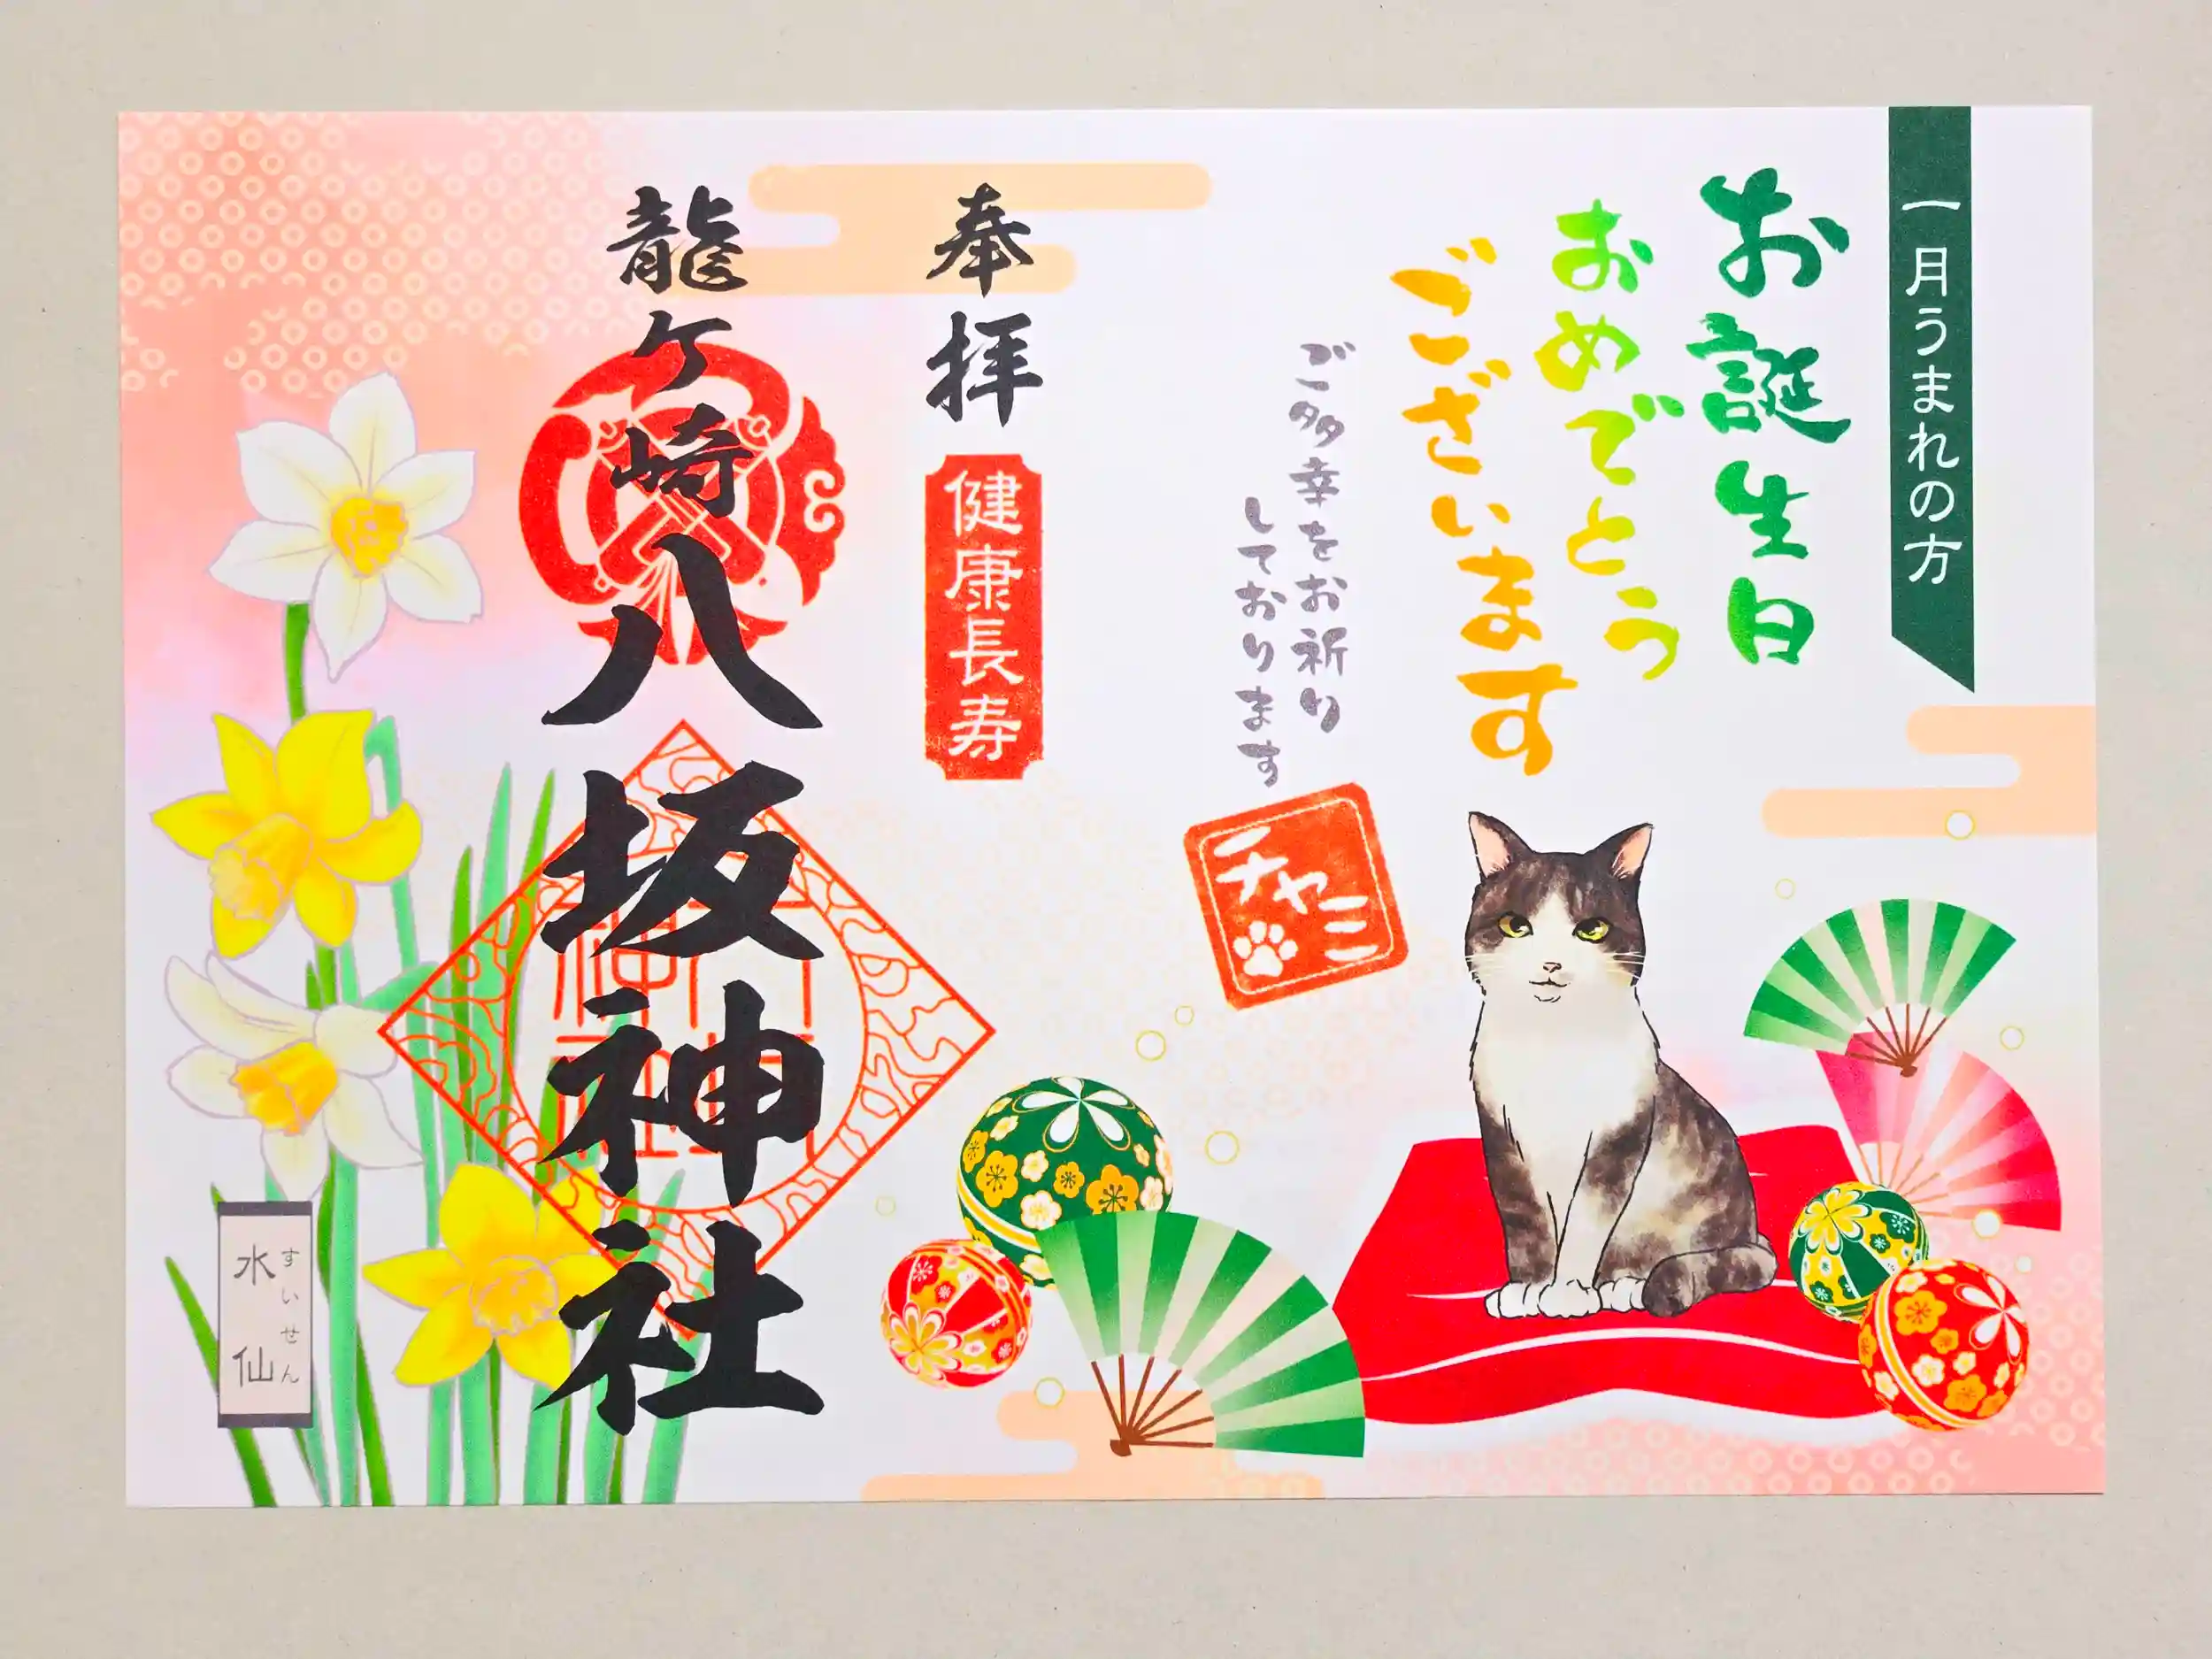 一月うまれの方
お誕生日
おめでとう
ございます
ご多幸をお祈り
しております
チャミ
奉拝
健康長寿
龍ケ崎八坂神社
すいせん
水仙